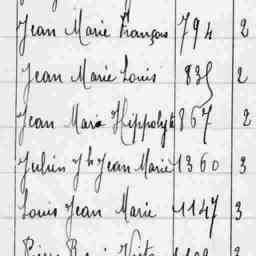 Jean Marie François 794 2
Jean Marie Louis 835 2
Jean Marie Hippolyte 867 2
Julien Jh Jean Marie 1360 3
Louis Jean Marie 1147 3